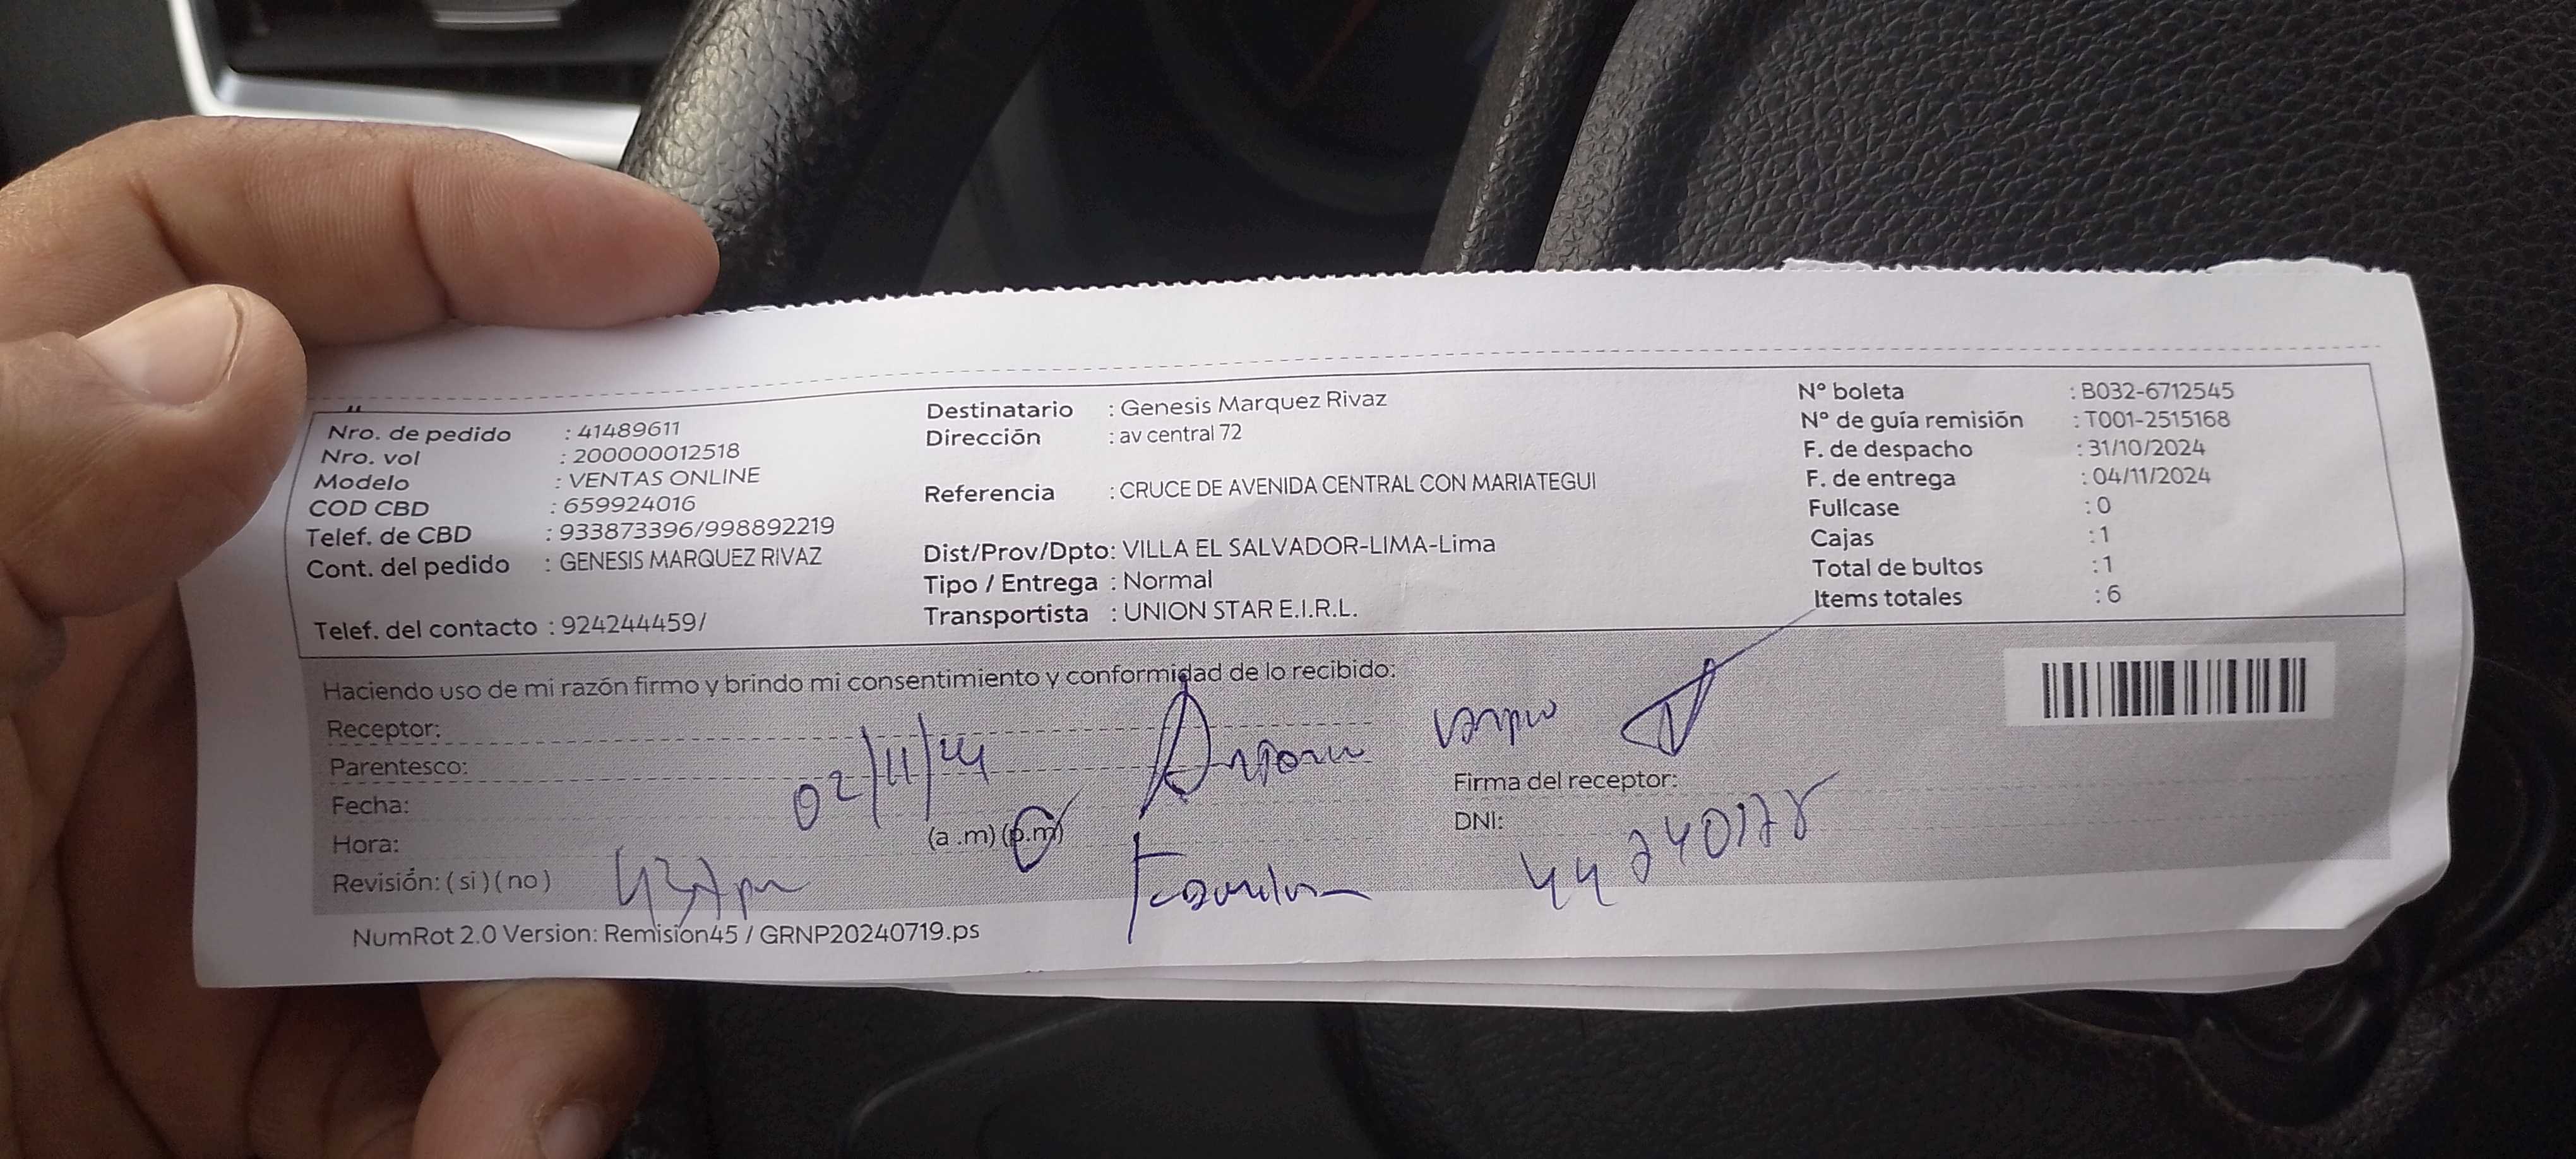 Nro. de pedido : 41489611
Nro. vol : 200000012518
Modelo : VENTAS ONLINE
COD CBD : 659924016
Telef. de CBD : 933873396/998892219
Cont. del pedido : GENESIS MARQUEZ RIVAZ
Telef. del contacto : 924244459/
Destinatario : Genesis Marquez Rivaz
Dirección : av central 72
Referencia : CRUCE DE AVENIDA CENTRAL CON MARIATEGUI
Dist/Prov/Dpto: VILLA EL SALVADOR-LIMA-Lima
Tipo / Entrega : Normal
Transportista : UNION STAR E.I.R.L.
Nº boleta : B032-6712545
Nº de guía remisión : T001-2515168
F. de despacho : 31/10/2024
F. de entrega : 04/11/2024
Fullcase : 0
Cajas : 1
Total de bultos : 1
Items totales : 6
Haciendo uso de mi razón firmo y brindo mi consentimiento y conformidad de lo recibido:
Receptor:
Parentesco:
Fecha: 02/11/24
Hora: (a .m) (p.m)
Revisión: ( si ) ( no )
Firma del receptor:
DNI:
NumRot 2.0 Version: Remision45 / GRNP20240719.ps